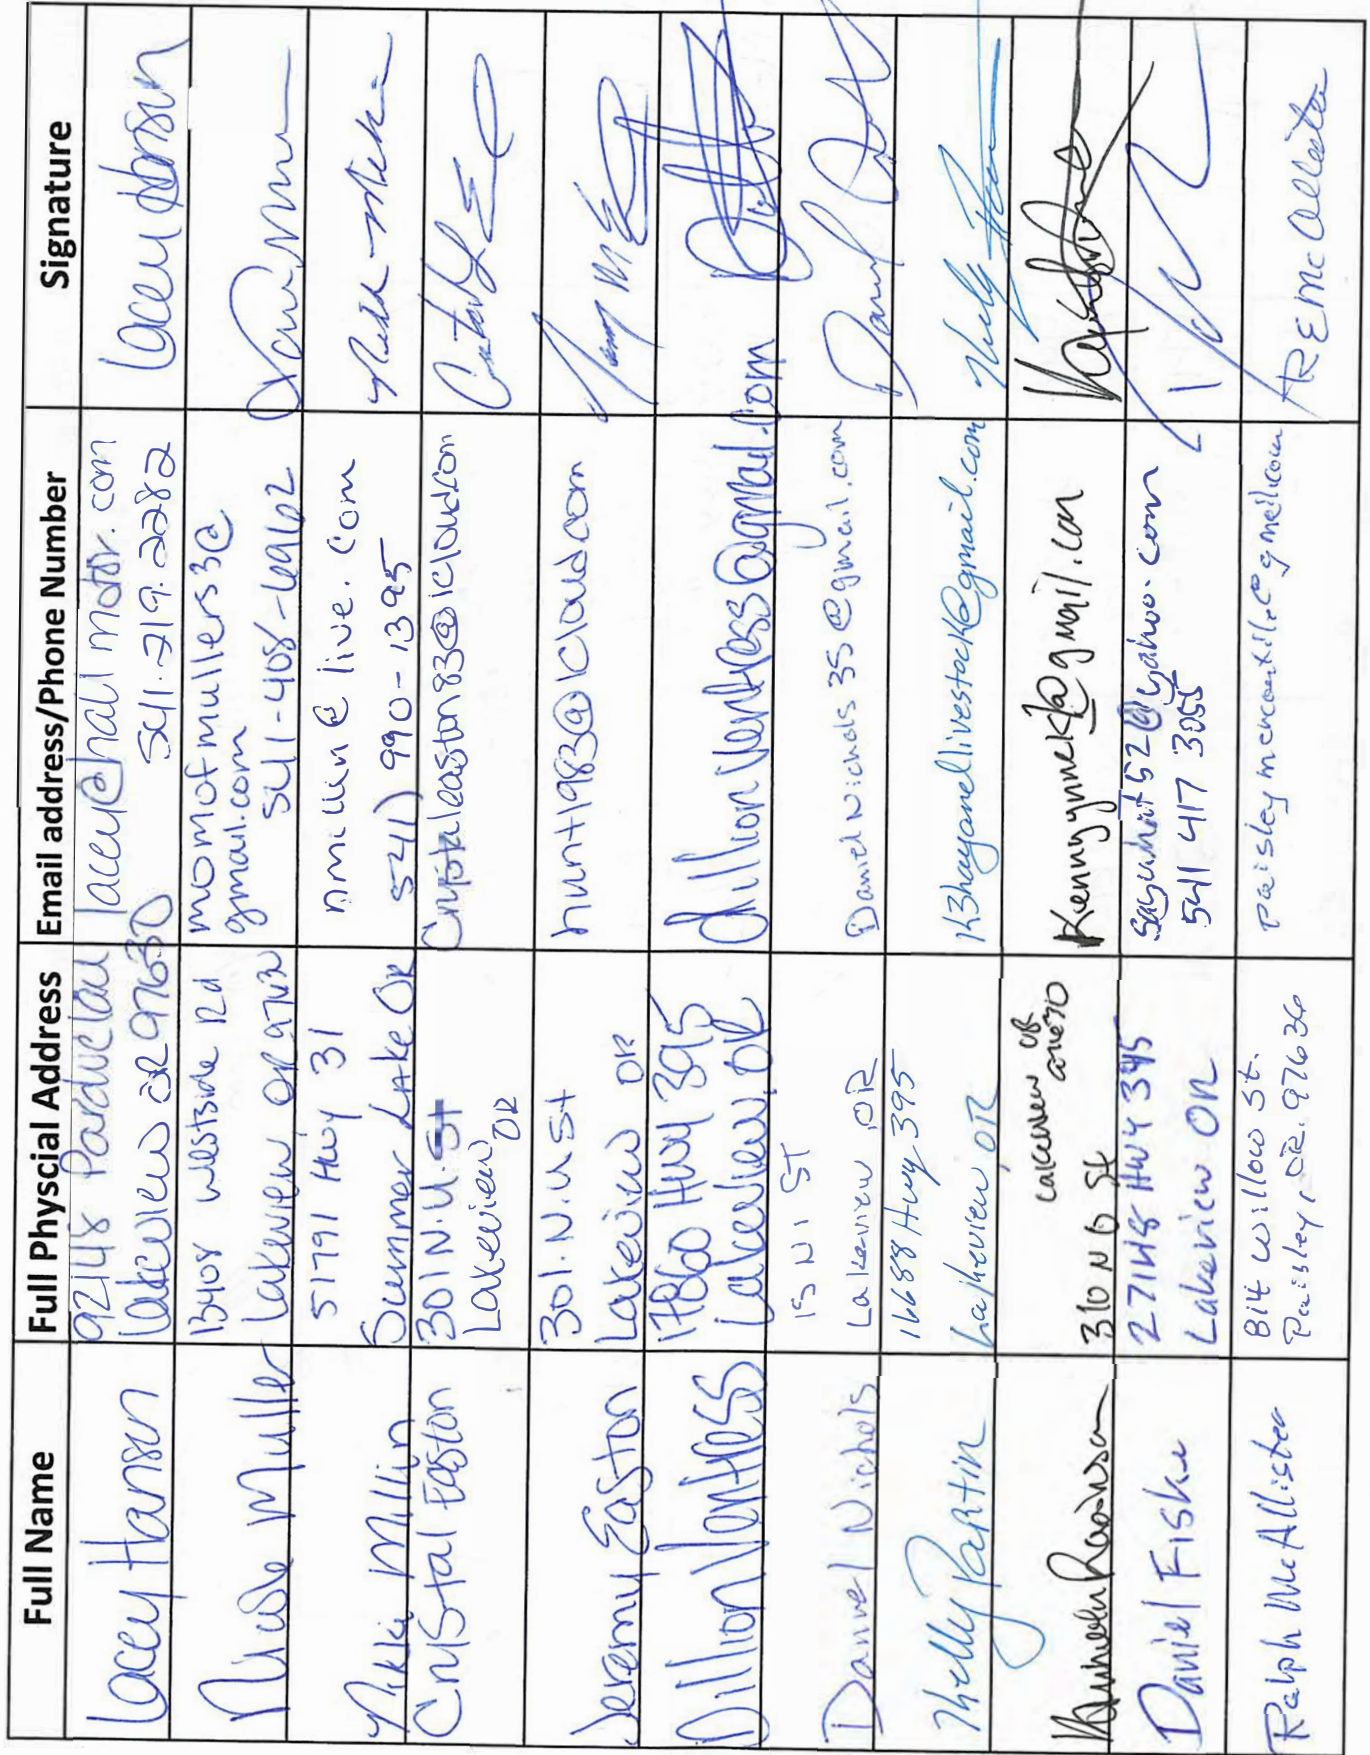 Full Name Full Physcial Address Email address/Phone Number Signature
Lacey Hansen
92148 Parduc Lau
Lakeview OR 97630
lacey@hall motor.com
541.219.2282
Lacey Hansen
Muller
13408 Westside Rd
Lakeview OR 97630
momofmullers3@
gmail.com
541-408-6962
Nikki Millin
51791 Hwy 31
Summer Lake OR
nmillin@live.com
541) 990-1395
Crystal Easton
301 N. U. St
Lakeview
OR
Crystaleaston83@icloud.com
Jeremy Easton
301. N. U St
Lakeview OR
hunt1983@icloud.com
Dillion Ventress
17860 Hwy 395
Lakeview, OR
dillionventress@gmail.com
Daniel Nichols
15 N 1 ST
Lakeview, OR
Daniel Nichols 35@gmail.com
Khelly Partin
16688 Hwy 395
Lakeview, OR
k3hayandlivestock@gmail.com
Lakeview OR
310 N O St
Kennyynnek1@gmail.com
Daniel Fiske
27148 Hwy 395
Lakeview OR
@yahoo.com
541 417 3055
Ralph McAllister
814 Willow St.
Paisley, OR. 97636
paisleymercantile@gmail.com
R E McAllister